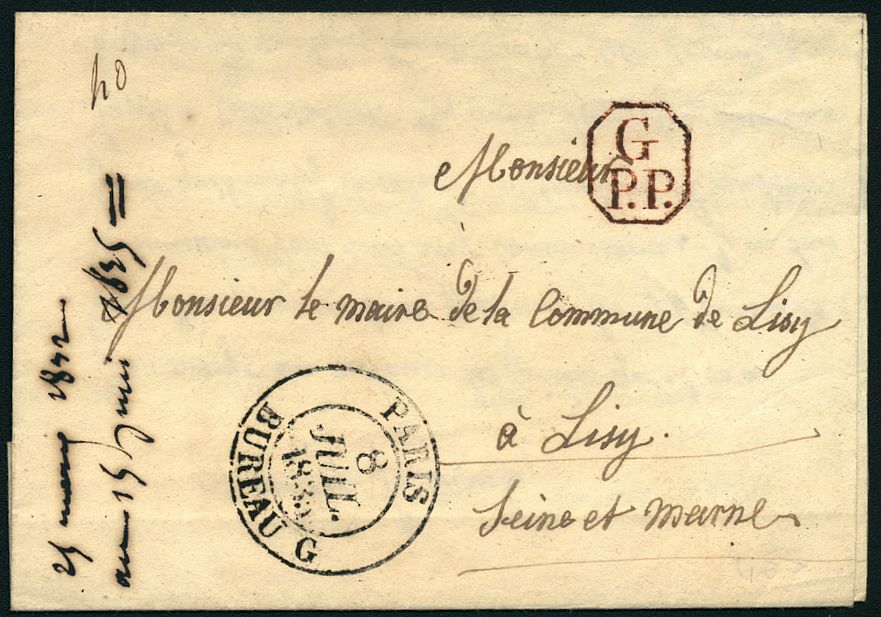 40
G
P.P.
Monsieur
Monsieur le maire de la Commune de Lisy
à Lisy.
Seine et marne
PARIS
8
JUIL.
1835
BUREAU G
1822
au 15 juin 1835